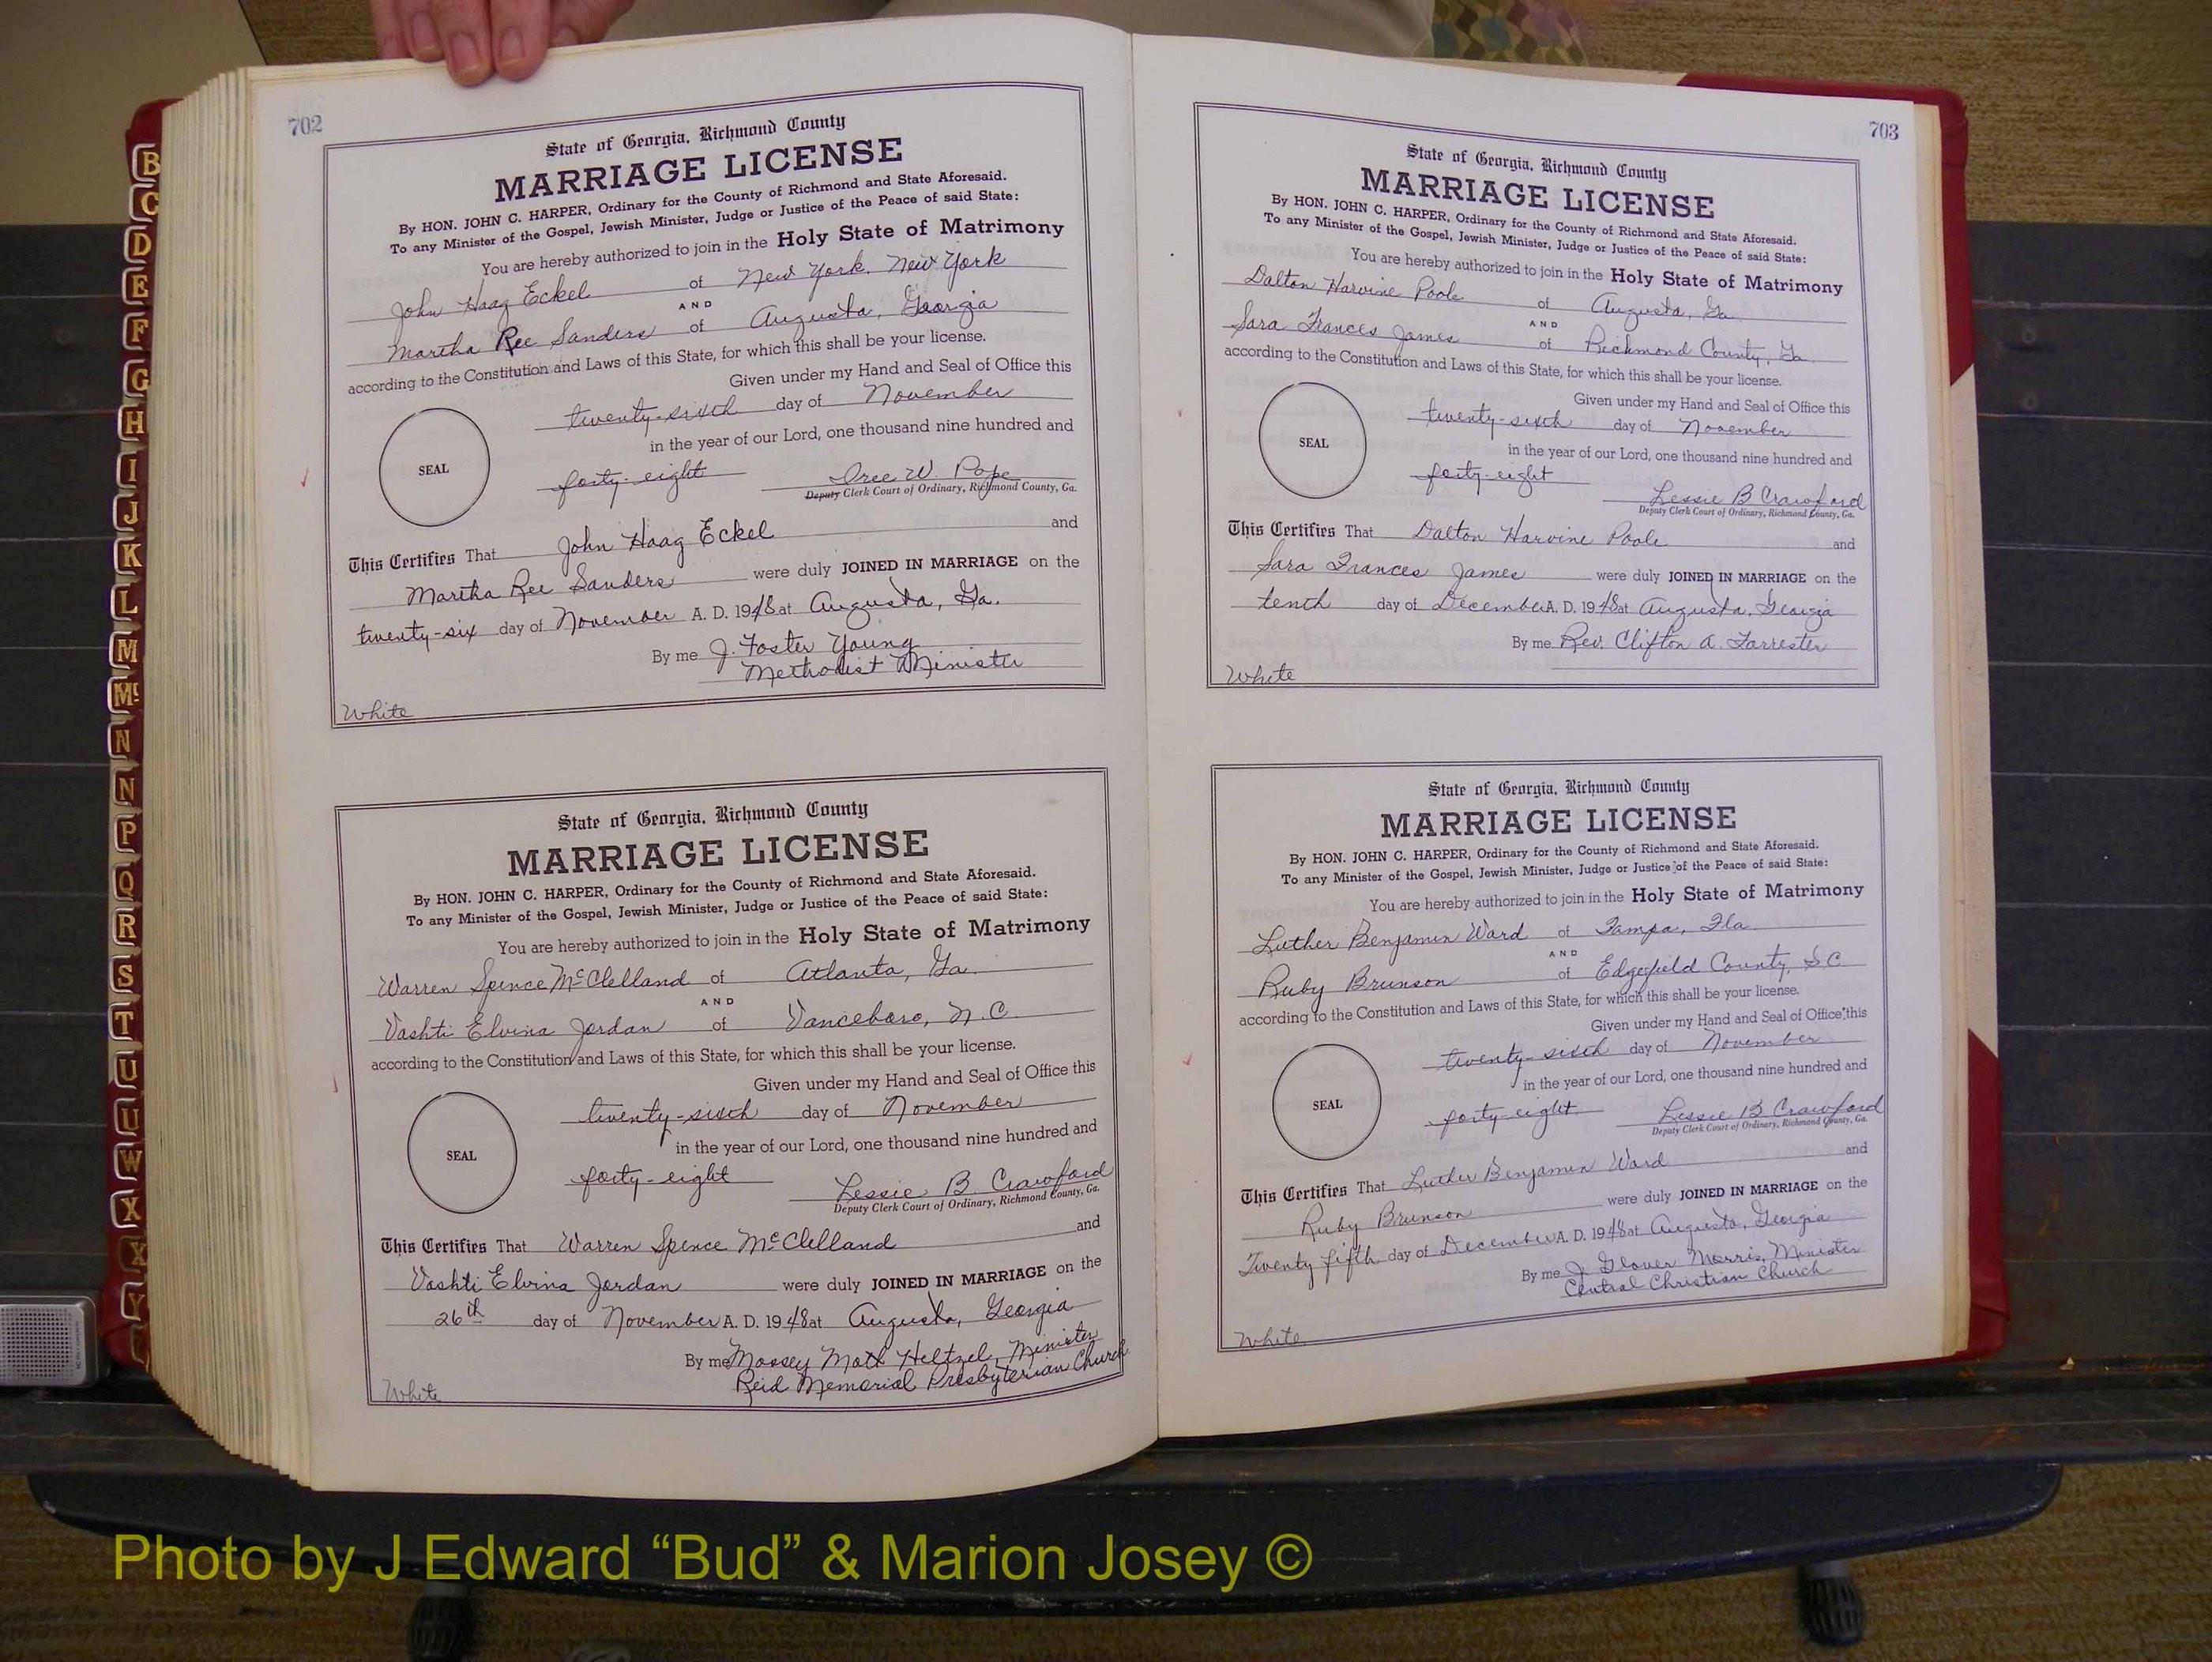 B
C
D
E
F
G
H
I
J
K
L
M
Mc
N
N
P
Q
R
S
T
U
U
W
X
X
Y
702
State of Georgia, Richmond County
MARRIAGE LICENSE
By HON. JOHN C. HARPER, Ordinary for the County of Richmond and State Aforesaid.
To any Minister of the Gospel, Jewish Minister, Judge or Justice of the Peace of said State:
You are hereby authorized to join in the Holy State of Matrimony
John Haag Eckel of New York, New York
AND
Martha Ree Sanders of Augusta, Georgia
according to the Constitution and Laws of this State, for which this shall be your license.
Given under my Hand and Seal of Office this
twenty-sixth day of November
in the year of our Lord, one thousand nine hundred and
SEAL
forty-eight Iree W. Pope
Deputy Clerk Court of Ordinary, Richmond County, Ga.
This Certifies That John Haag Eckel and
Martha Ree Sanders were duly JOINED IN MARRIAGE on the
twenty-six day of November A. D. 1948 at Augusta, Ga.
By me J. Foster Young
Methodist Minister
White
State of Georgia, Richmond County
MARRIAGE LICENSE
By HON. JOHN C. HARPER, Ordinary for the County of Richmond and State Aforesaid.
To any Minister of the Gospel, Jewish Minister, Judge or Justice of the Peace of said State:
You are hereby authorized to join in the Holy State of Matrimony
Warren Spence McClelland of Atlanta, Ga.
AND
Vashti Elvina Jordan of Vanceboro, N.C.
according to the Constitution and Laws of this State, for which this shall be your license.
Given under my Hand and Seal of Office this
twenty-sixth day of November
in the year of our Lord, one thousand nine hundred and
SEAL
forty-eight Lessie B. Crawford
Deputy Clerk Court of Ordinary, Richmond County, Ga.
This Certifies That Warren Spence McClelland and
Vashti Elvina Jordan were duly JOINED IN MARRIAGE on the
26th day of November A. D. 1948 at Augusta, Georgia
By me Massey Mott Heltzel, Minister
Reid Memorial Presbyterian Church
White
703
State of Georgia, Richmond County
MARRIAGE LICENSE
By HON. JOHN C. HARPER, Ordinary for the County of Richmond and State Aforesaid.
To any Minister of the Gospel, Jewish Minister, Judge or Justice of the Peace of said State:
You are hereby authorized to join in the Holy State of Matrimony
Dalton Harvine Poole of Augusta, Ga.
AND
Sara Frances James of Richmond County, Ga.
according to the Constitution and Laws of this State, for which this shall be your license.
Given under my Hand and Seal of Office this
twenty-sixth day of November
SEAL
in the year of our Lord, one thousand nine hundred and
forty-eight Lessie B Crawford
Deputy Clerk Court of Ordinary, Richmond County, Ga.
This Certifies That Dalton Harvine Poole and
Sara Frances James were duly JOINED IN MARRIAGE on the
tenth day of December A. D. 1948 at Augusta, Georgia
By me Rev. Clifton A. Forrester
White
State of Georgia, Richmond County
MARRIAGE LICENSE
By HON. JOHN C. HARPER, Ordinary for the County of Richmond and State Aforesaid.
To any Minister of the Gospel, Jewish Minister, Judge or Justice of the Peace of said State:
You are hereby authorized to join in the Holy State of Matrimony
Luther Benjamin Ward of Tampa, Fla
AND
Ruby Brunson of Edgefield County, S.C.
according to the Constitution and Laws of this State, for which this shall be your license.
Given under my Hand and Seal of Office this
twenty-sixth day of November
in the year of our Lord, one thousand nine hundred and
SEAL
forty-eight Lessie B Crawford
Deputy Clerk Court of Ordinary, Richmond County, Ga.
This Certifies That Luther Benjamin Ward and
Ruby Brunson were duly JOINED IN MARRIAGE on the
Twenty fifth day of December A. D. 1948 at Augusta, Georgia
By me J. Glover Morris, Minister
Central Christian Church
White
Photo by J Edward “Bud” & Marion Josey ©